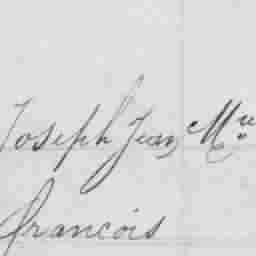 Joseph Jean Mie
francois